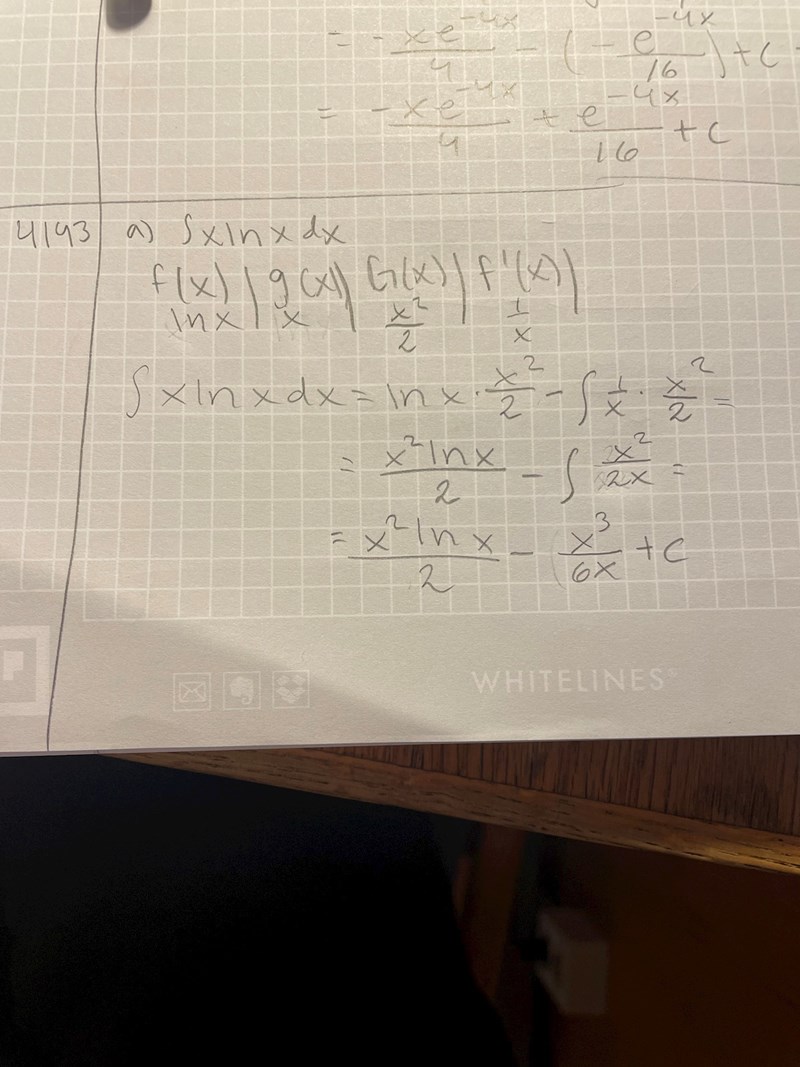 = - xe^-4x/4 - (- e^-4x/16) + C
= - xe^-4x/4 + e^-4x/16 + C
4143 a) ∫x ln x dx
f(x) | g(x) | G(x) | f'(x) |
ln x | x | x²/2 | 1/x
∫ x ln x dx = ln x · x²/2 - ∫ 1/x · x²/2 =
= x² ln x/2 - ∫ x²/2x =
= x² ln x/2 - x³/6x + C
WHITELINES®